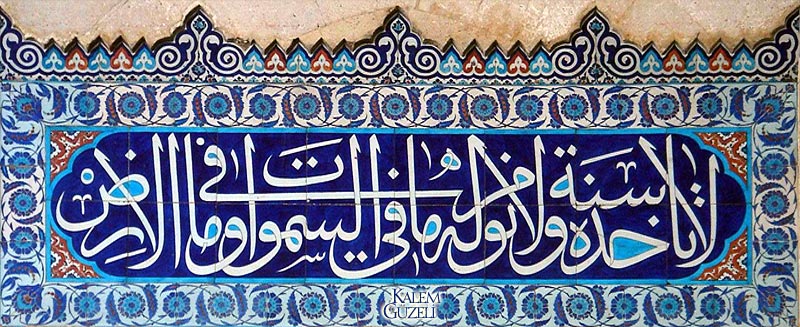 لا تاخذه سنة ولا نوم له ما فى السموات وما فى الارض
KALEM
GÜZELİ